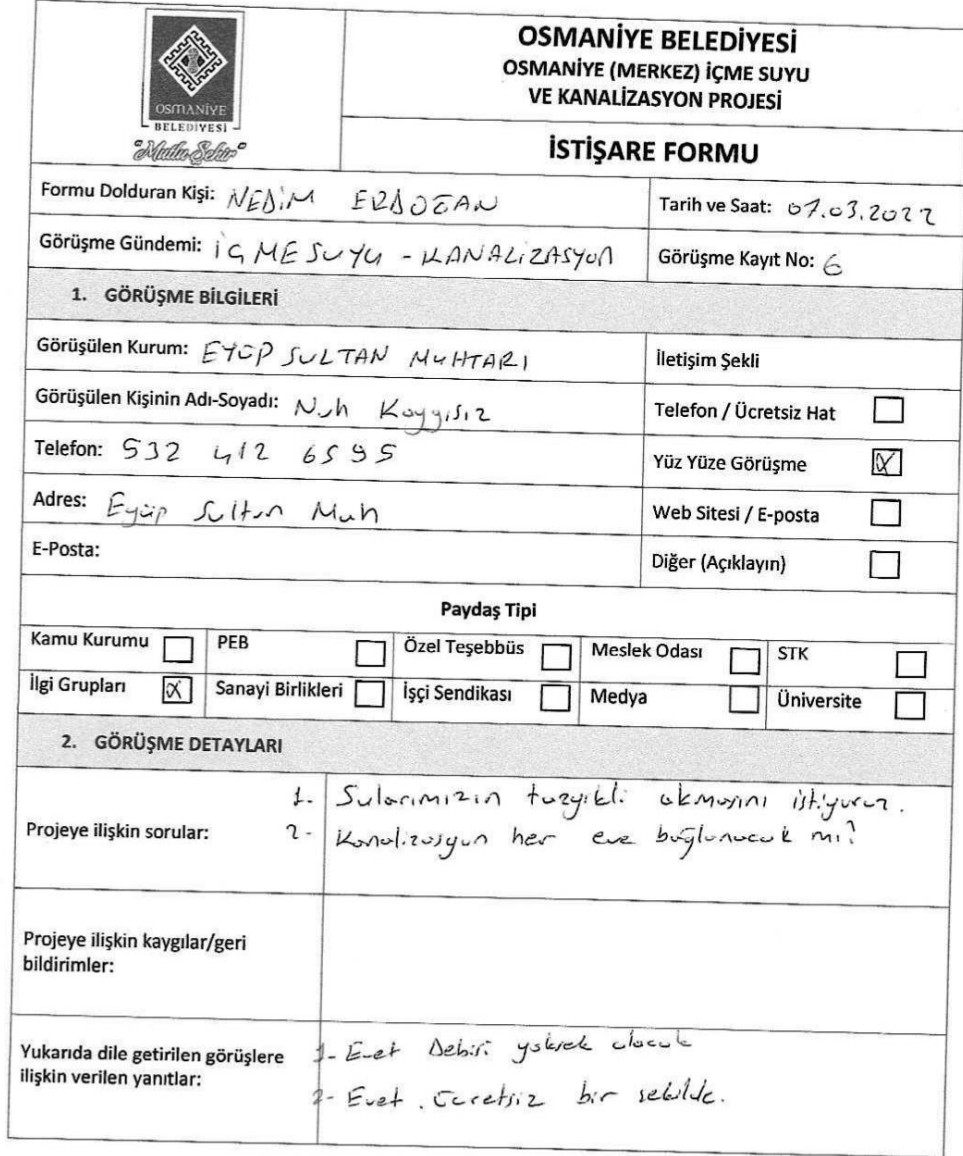 OSMANİYE
BELEDİYESİ
"Mutlu Şehir"
OSMANİYE BELEDİYESİ
OSMANİYE (MERKEZ) İÇME SUYU
VE KANALİZASYON PROJESİ
İSTİŞARE FORMU
Formu Dolduran Kişi: NEDİM ERDOĞAN
Tarih ve Saat: 07.03.2022
Görüşme Gündemi: İÇME SUYU - KANALİZASYON
Görüşme Kayıt No: 6
1. GÖRÜŞME BİLGİLERİ
Görüşülen Kurum: EYÜP SULTAN MUHTARI
İletişim Şekli
Görüşülen Kişinin Adı-Soyadı: Nuh Kaygısız
Telefon / Ücretsiz Hat
Telefon: 532 412 6595
Yüz Yüze Görüşme
Adres: Eyüp Sultan Mah
Web Sitesi / E-posta
E-Posta:
Diğer (Açıklayın)
Paydaş Tipi
Kamu Kurumu PEB Özel Teşebbüs Meslek Odası STK
İlgi Grupları Sanayi Birlikleri İşçi Sendikası Medya Üniversite
2. GÖRÜŞME DETAYLARI
Projeye ilişkin sorular:
1. Sularımızın tazyikli akmasını istiyoruz.
2- Kanalizasyon her eve bağlanacak mı?
Projeye ilişkin kaygılar/geri
bildirimler:
Yukarıda dile getirilen görüşlere
ilişkin verilen yanıtlar:
1- Evet Debisi yüksek olacak
2- Evet. Ücretsiz bir şekilde.